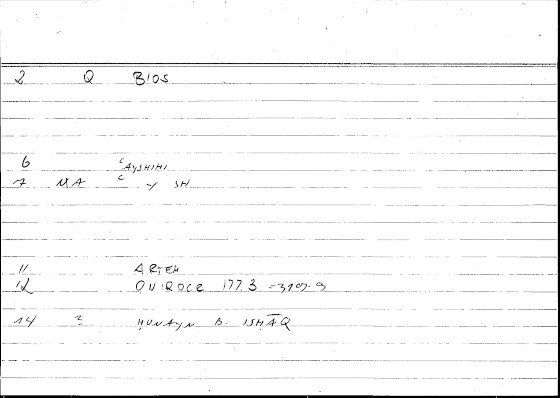 2 Q BIOS
6 ʿAYSHIHI
7 MA ʿ Y SH
11 ARTEM
12 ONIROCR 177.3 = 319.9
14 ? ḤUNAYN B. ISḤĀQ